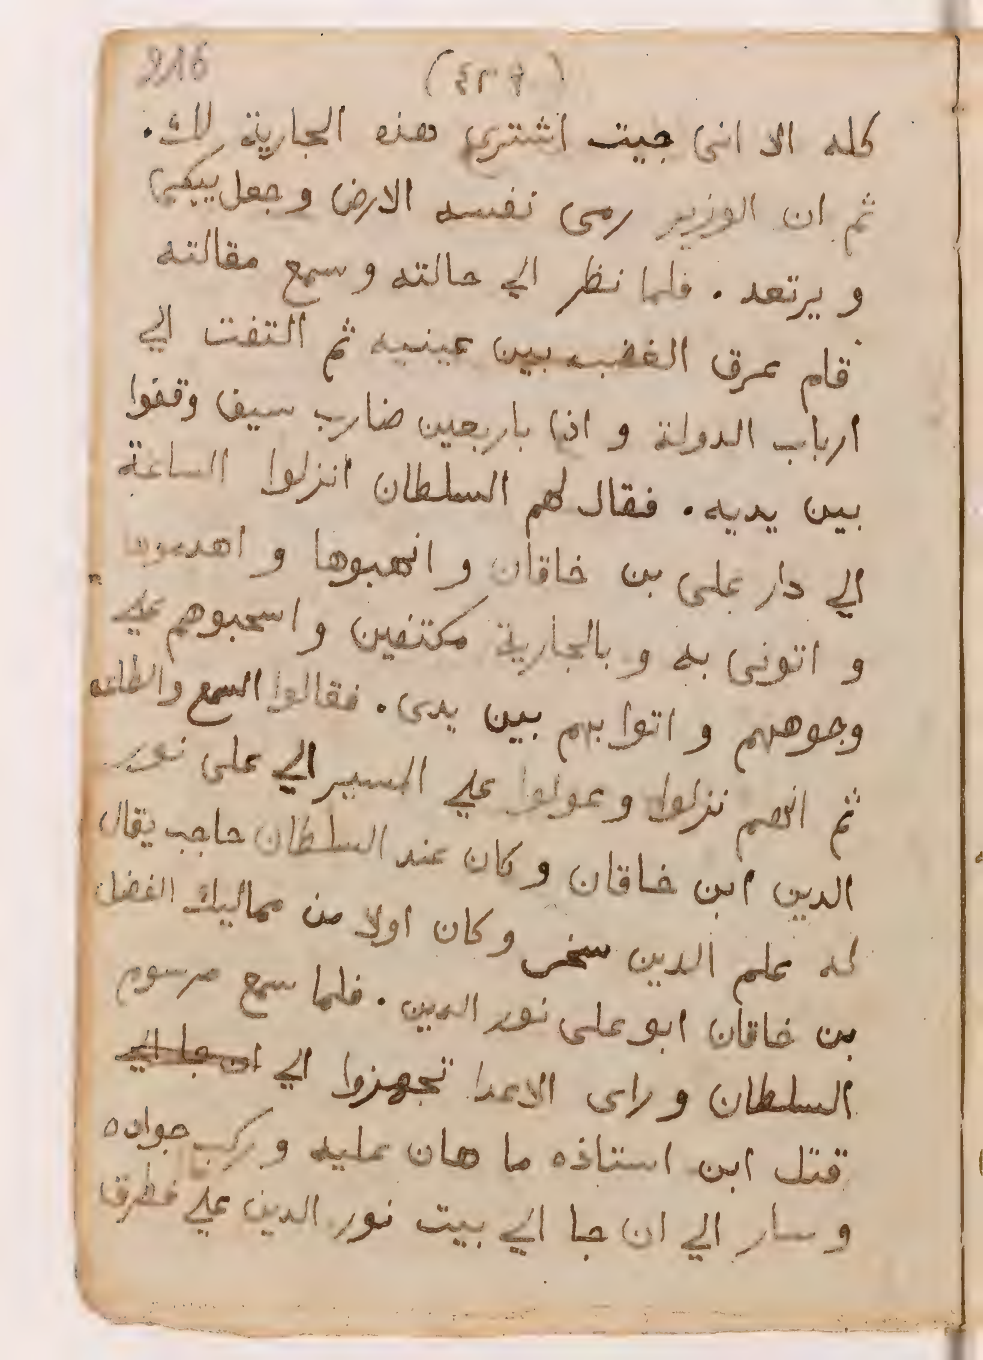 216
كله الا انى جيت اشترى هذه الجارية لك.
ثم ان الوزير رمى نفسه الارض وجعل يبكى
و يرتعد . فلما نظر الي حالته و سمع مقالته
قام عرق الغضب بين عينيه ثم التفت الي
ارباب الدولة و اذا باربعين ضارب سيف وقفوا
بين يديه . فقال لهم السلطان انزلوا الساعة
الي دار على بن خاقان و انهبوها و اهدموها
و اتونى به و بالجارية مكتفين و اسحبوهم علي
وجوههم و اتوا بهم بين يدى . فقالوا السمع والطاعه
ثم انهم نزلوا وعولوا علي المسير الي على نور
الدين ابن خاقان و كان عند السلطان حاجب يقال
له علم الدين سنجر و كان اولا من مماليك الفضل
بن خاقان ابو على نور الدين . فلما سمع مرسوم
السلطان و راى الاعدا تجهزوا الي ان جا الي
قتل ابن استاذه ما هان عليه و ركب جواده
و سار الي ان جا الي بيت نور الدين علي فطرق